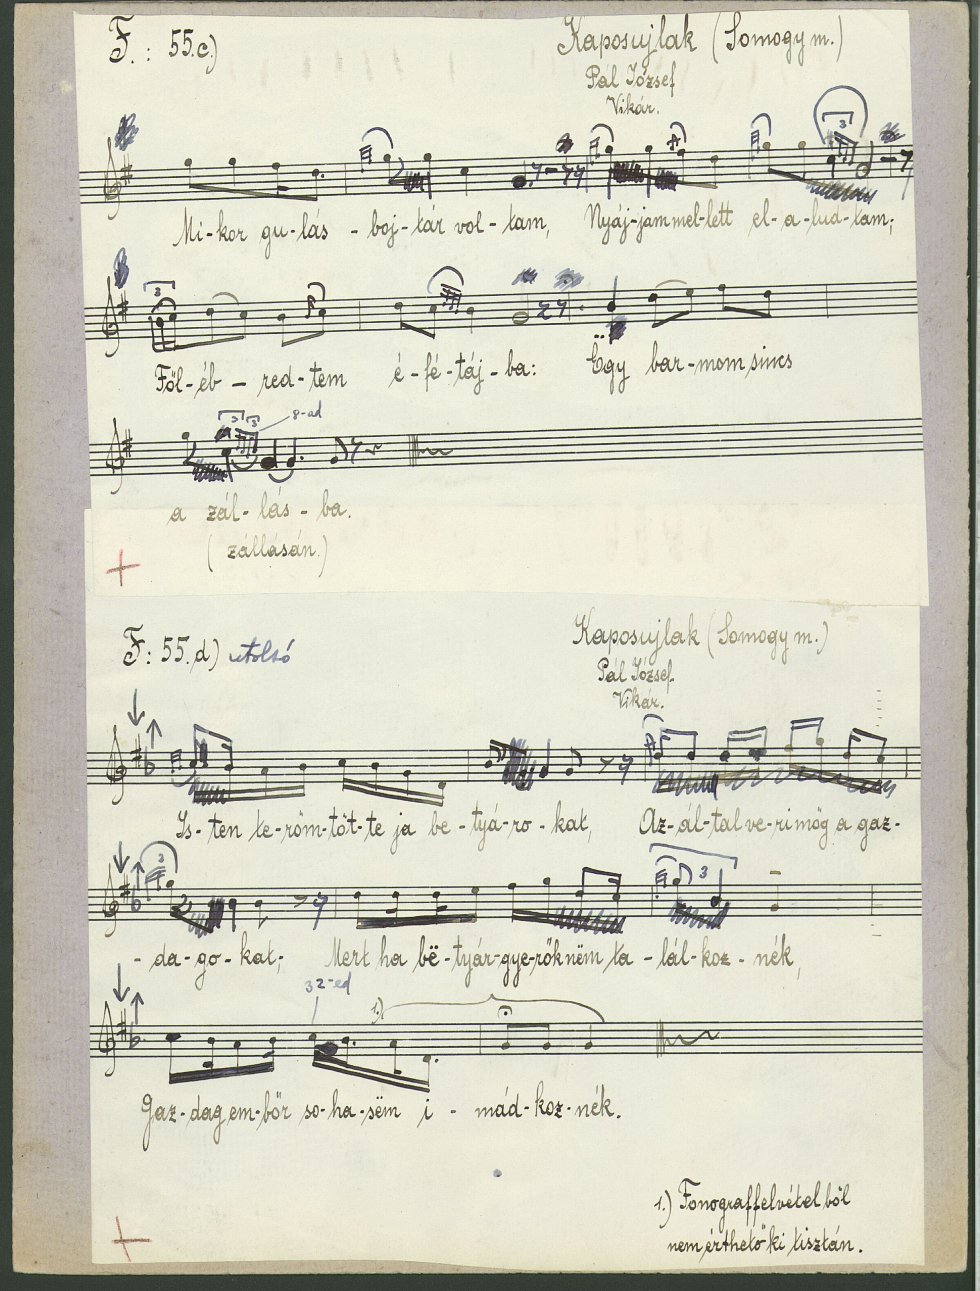 F.: 55.c)
Kaposujlak (Somogy m.)
Pál József
Vikár.
3
Mi-kor gu-lás - boj-tár vol-tam, Nyáj-jam mel-lett el-a-lud-tam;
3
Föl-éb - red-tem é-fé-táj-ba: Ëgy bar-mom sincs
3 3 8-ad
a zál-lás-ba.
(zállásán.)
F: 55.d) utolsó
Kaposujlak (Somogy m.)
Pál József
Vikár.
Is-ten te-röm-töt-te ja be-tyá-ro-kat, Az-ál-tal ve-ri mög a gaz-
3 3
- da-go-kat; Mert ha bë-tyár-gye-rök nëm ta-lál-koz-nék,
32-ed
1.)
Gaz-dag em-bör so-ha-sëm i - mád-koz-nék.
1.) Fonograffelvételből
nem érthető ki tisztán.